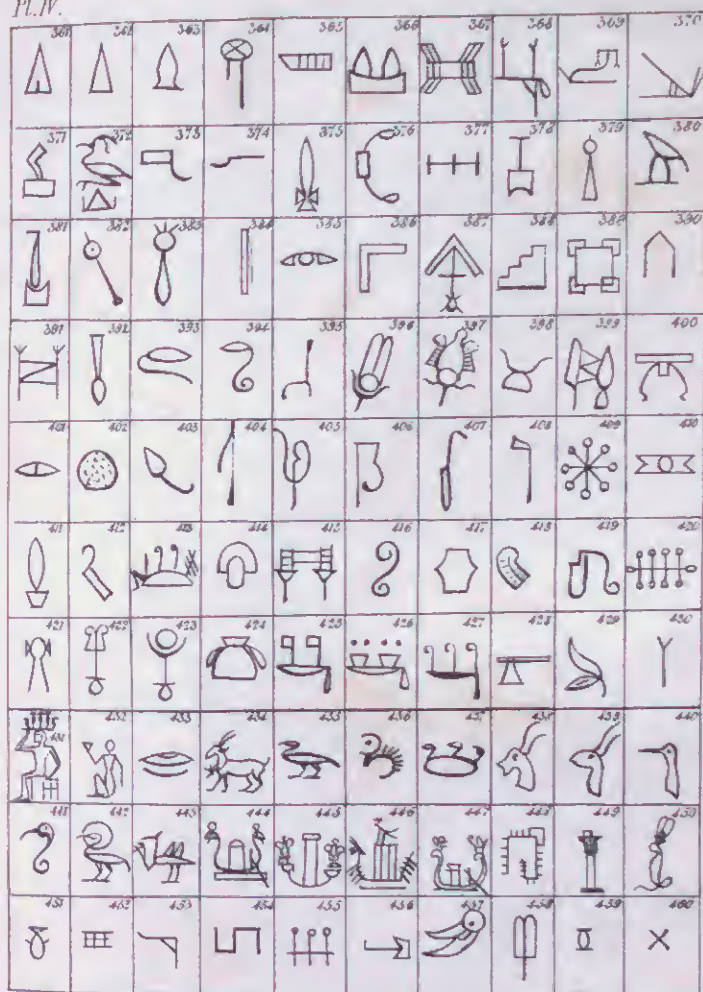 Pl. IV.
361 362 363 364 365 366 367 368 369 370
371 372 373 374 375 376 377 378 379 380
381 382 383 384 385 386 387 388 389 390
391 392 393 394 395 396 397 398 399 400
401 402 403 404 405 406 407 408 409 410
411 412 413 414 415 416 417 418 419 420
421 422 423 424 425 426 427 428 429 430
431 432 433 434 435 436 437 438 439 440
441 442 443 444 445 446 447 448 449 450
451 452 453 454 455 456 457 458 459 460